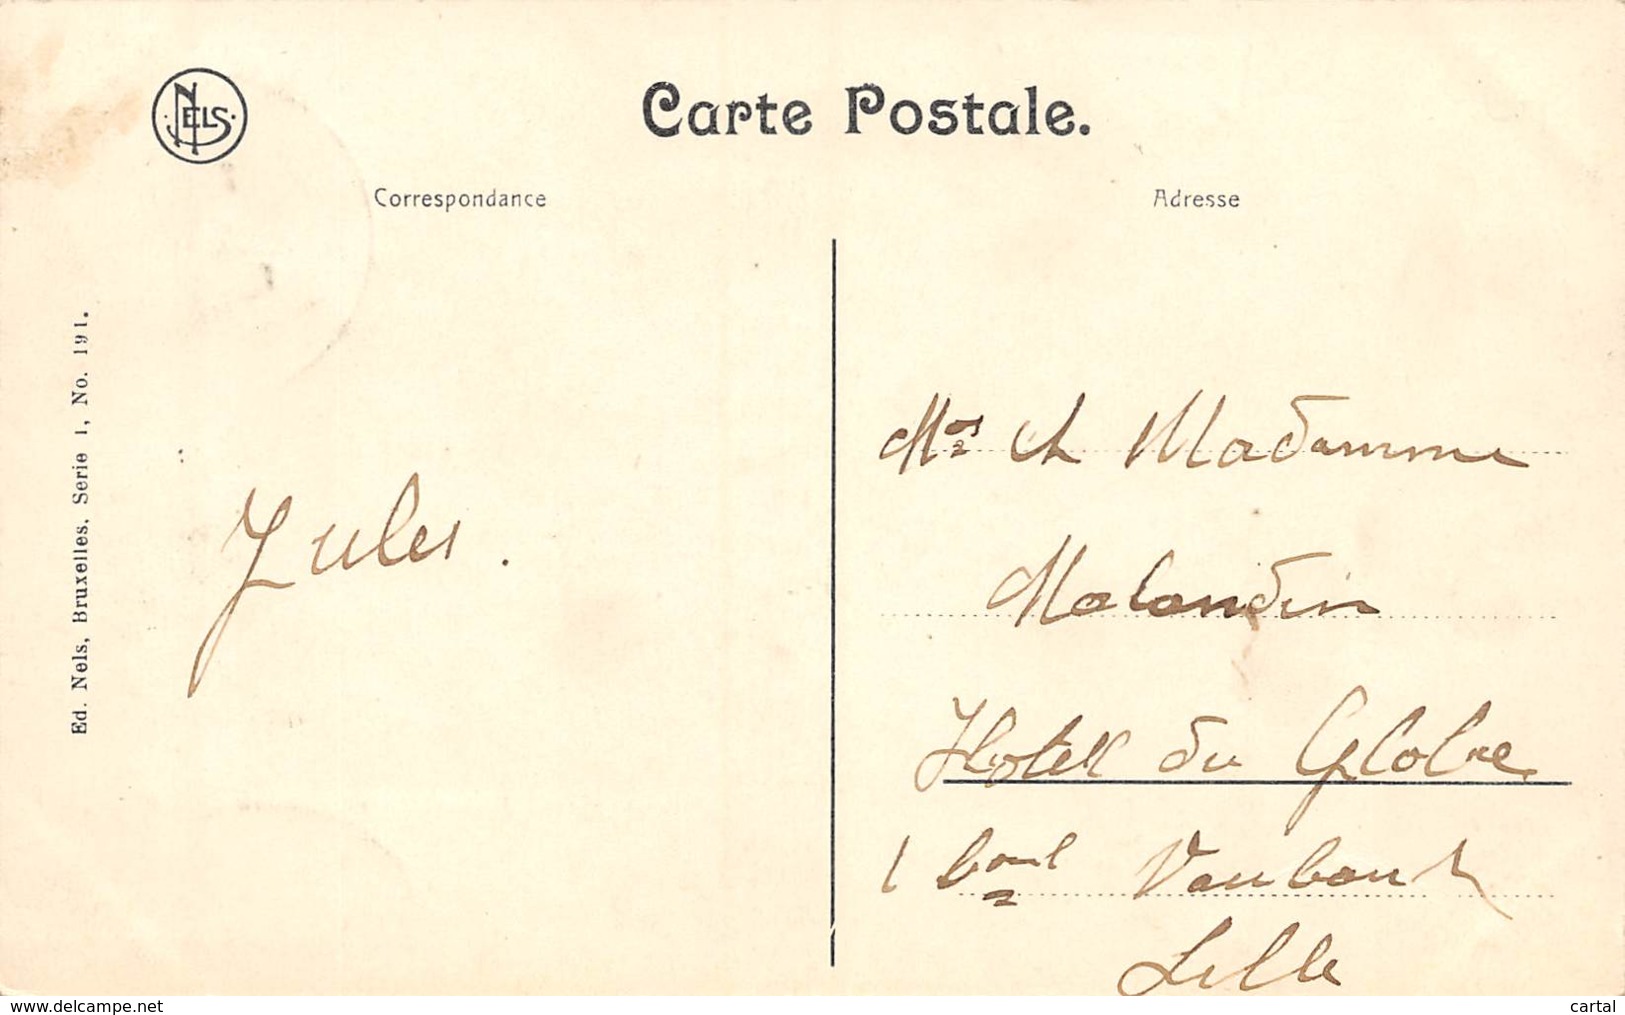 NELS
Carte Postale.
Correspondance
Adresse
Ed. Nels, Bruxelles, Serie 1, No. 191.
Jules.
et Madamme
Malandin
Hotel du Globe
1 Vauban
Lille
www.delcampe.net
cartal